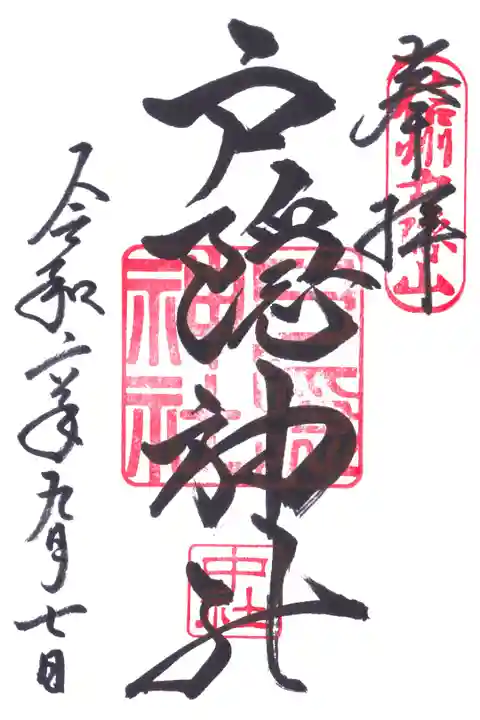 奉拝
信州戸隠山
戸隠神社
戸隠神社
中社
令和二年九月七日